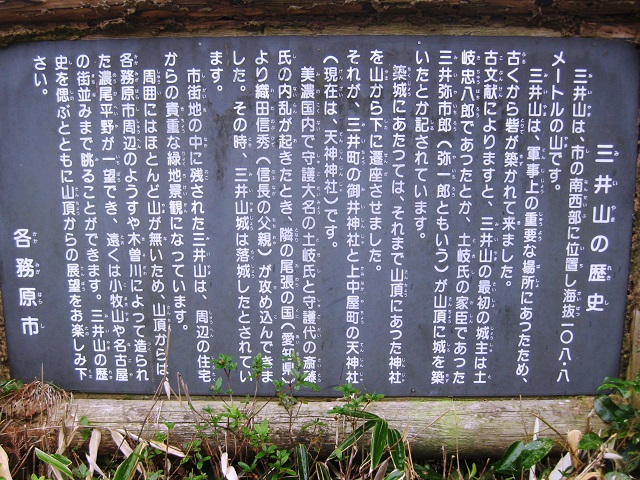 三井山の歴史
三井山は、市の南西部に位置し海抜一〇八・八
メートルの山です。
三井山は、軍事上の重要な場所にあったため、
古くから砦が築かれて来ました。
古文献によりますと、三井山の最初の城主は土
岐忠八郎であったとか、土岐氏の家臣であった
三井弥市郎（弥一郎ともいう）が山頂に城を築
いたとか記されています。
築城にあたっては、それまで山頂にあった神社
を山から下に遷座させました。
それが、三井町の御井神社と上中屋町の天神社
（現在は、天神神社）です。
美濃国内で守護大名の土岐氏と守護代の斎藤
氏の内乱が起きたとき、隣の尾張の国（愛知県）
より織田信秀（信長の父親）が攻め込んできま
した。その時、三井山城は落城したとされてい
ます。
市街地の中に残された三井山は、周辺の住宅
からの貴重な緑地景観になっています。
周囲にはほとんど山が無いため、山頂からは
各務原市周辺のようすや木曽川によって造られ
た濃尾平野が一望でき、遠くは小牧山や名古屋
の街並みまで眺めることができます。三井山の歴
史を偲ぶとともに山頂からの展望をお楽しみ下
さい。
各務原市